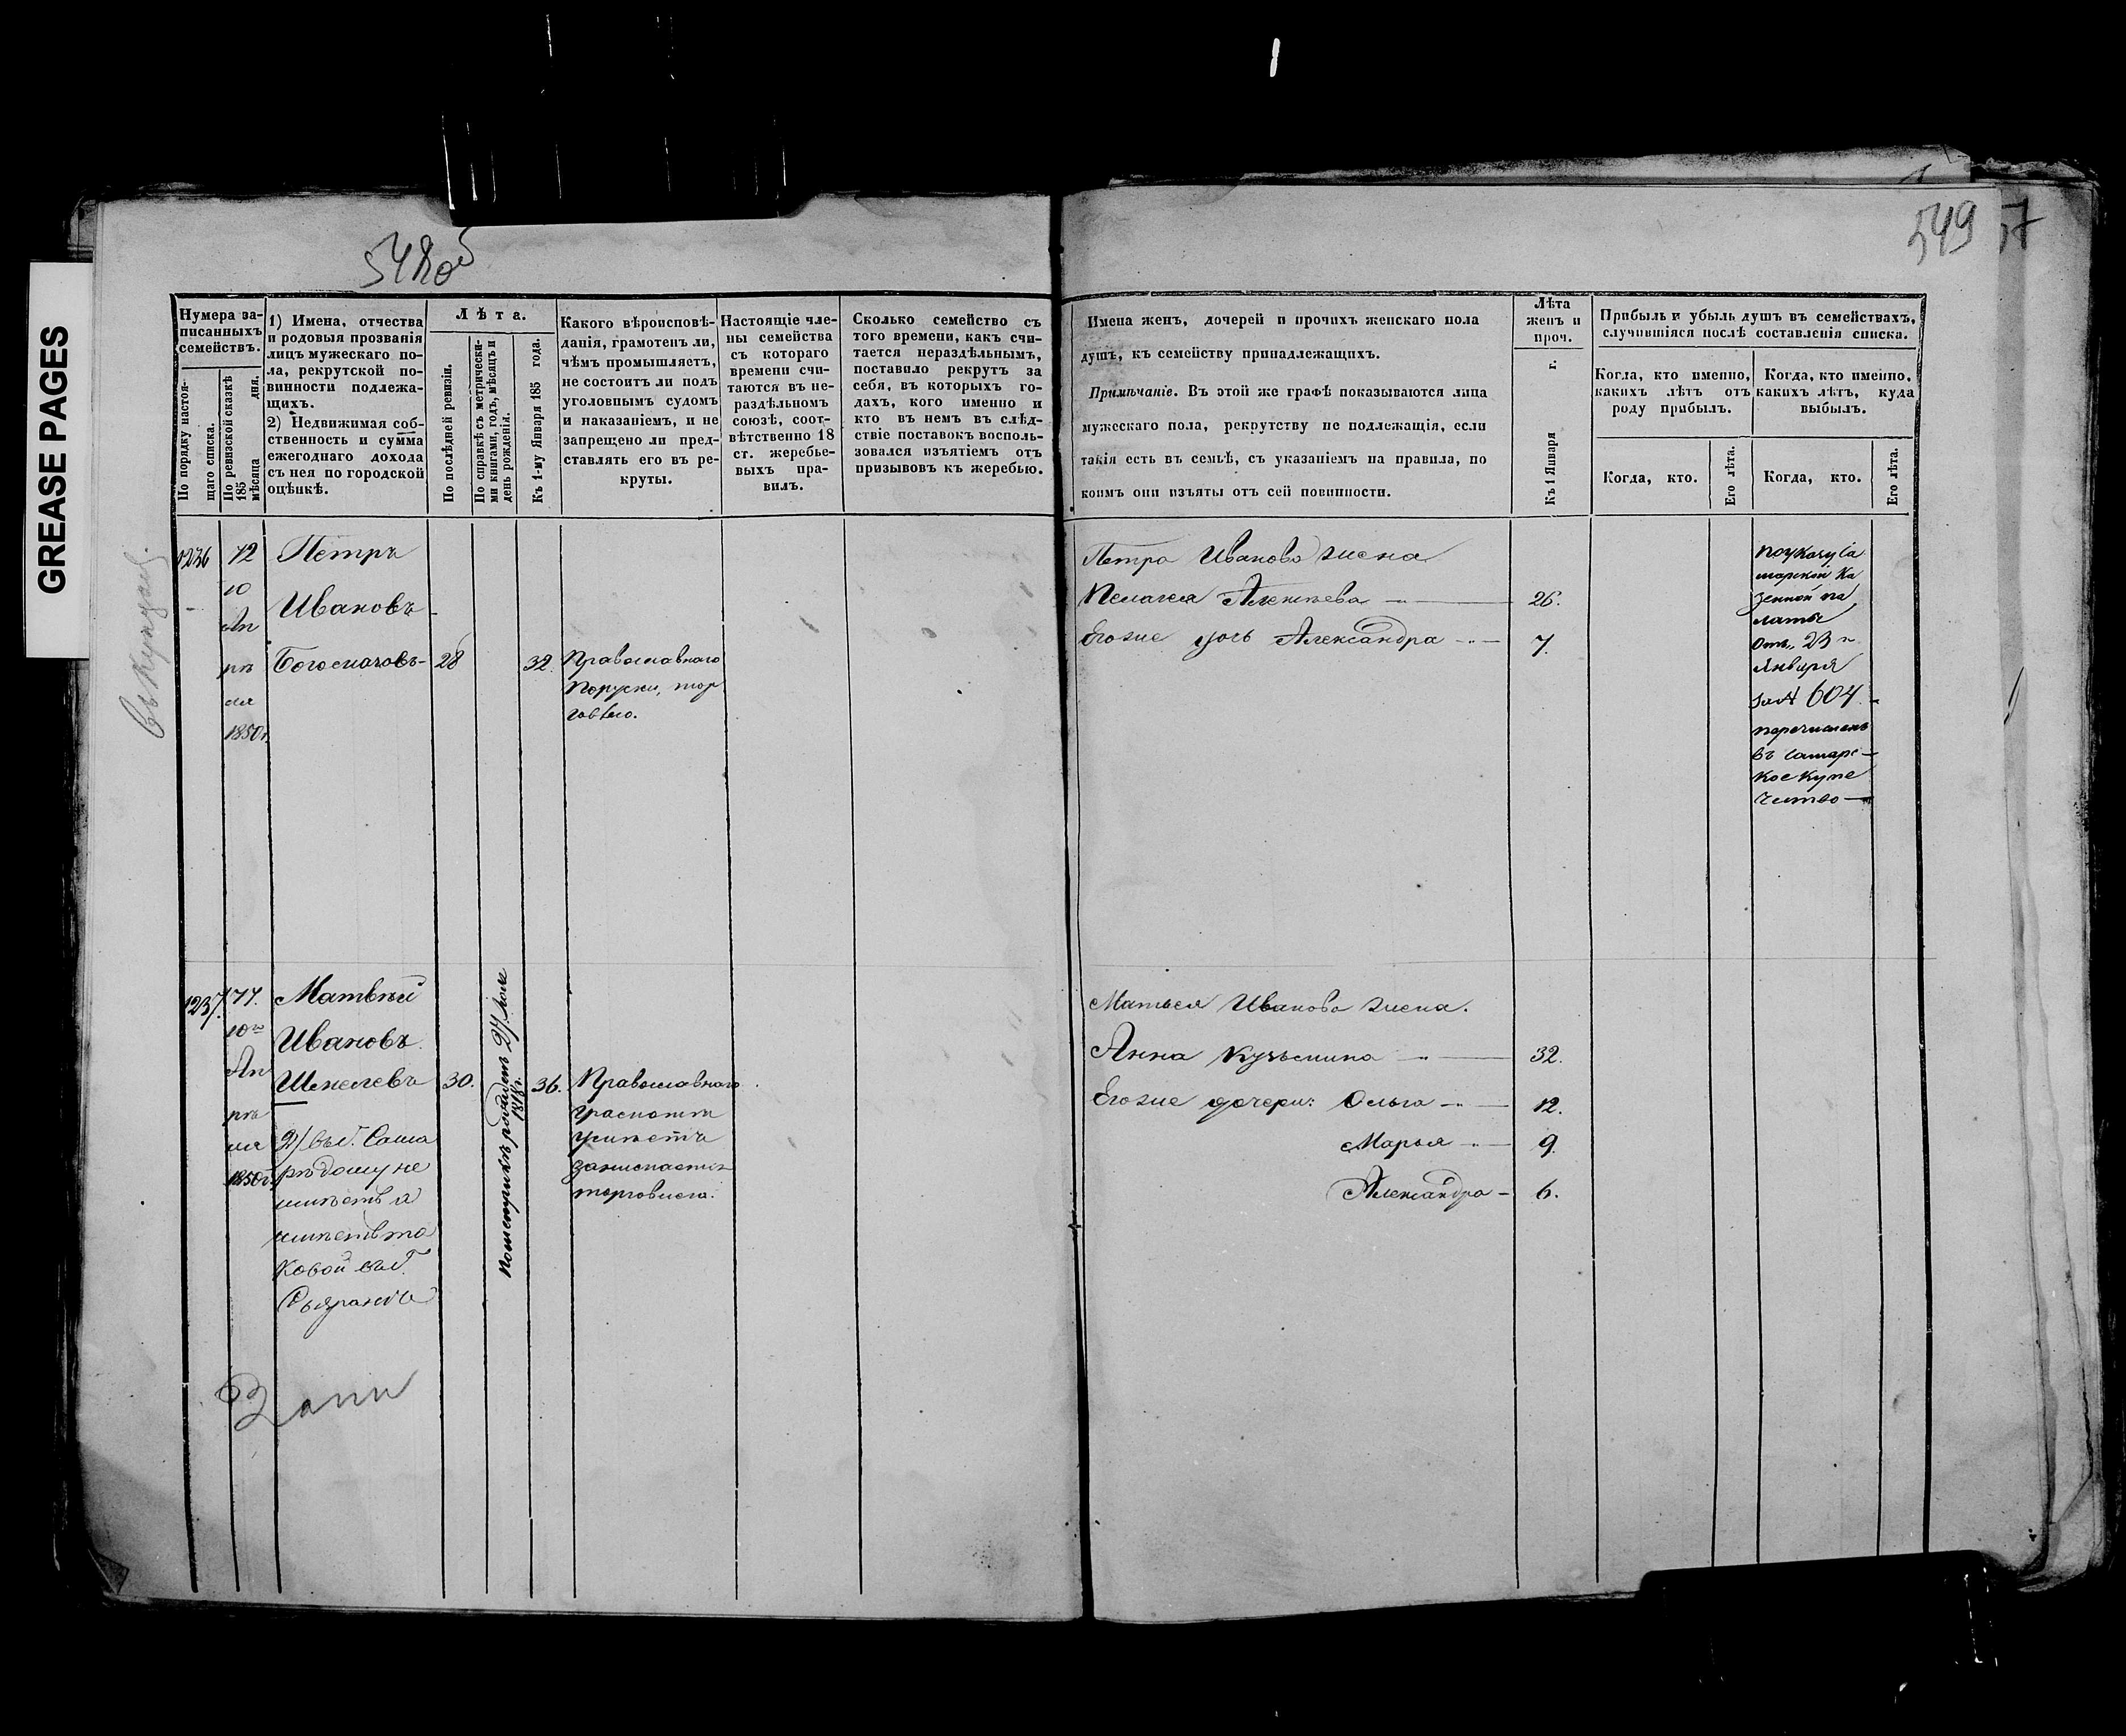 GREASE PAGES
548 об
549
57
Нумера за-
писанныхъ
семействъ.
По порядку настоя-
щаго списка.
По ревизской сказкѣ
185 дня.
мѣсяца
1) Имена, отчества
и родовыя прозванія
лицъ мужескаго по-
ла, рекрутской по-
винности подлежа-
щихъ.
2) Недвижимая соб-
ственность и сумма
ежегоднаго дохода
съ нея по городской
оцѣнкѣ.
Лѣта.
По послѣдней ревизіи.
По справкѣ съ метрически-
ми книгами, годъ, мѣсяцъ и
день рожденія.
Къ 1-му Января 185 года.
Какого вѣроисповѣ-
данія, грамотенъ ли,
чѣмъ промышляетъ,
не состоитъ ли подъ
уголовнымъ судомъ
и наказаніемъ, и не
запрещено ли пред-
ставлять его въ ре-
круты.
Настоящіе чле-
ны семейства
съ котораго
времени счи-
таются въ не-
раздѣльномъ
союзѣ, соот-
вѣтственно 18
ст. жеребье-
выхъ пра-
вилъ.
Сколько семейство съ
того времени, какъ счи-
тается нераздѣльнымъ,
поставило рекрутъ за
себя, въ которыхъ го-
дахъ, кого именно и
кто въ немъ въ слѣд-
ствіе поставокъ восполь-
зовался изъятіемъ отъ
призывовъ къ жеребью.
Имена женъ, дочерей и прочихъ женскаго пола
душъ, къ семейству принадлежащихъ.
Примѣчаніе. Въ этой же графѣ показываются лица
мужескаго пола, рекрутству не подлежащія, если
такія есть въ семьѣ, съ указаніемъ на правила, по
коимъ они изъяты отъ сей повинности.
Лѣта
женъ и
проч.
Къ 1 Января г.
Прибыль и убыль душъ въ семействахъ,
случившіяся послѣ составленія списка.
Когда, кто именно,
какихъ лѣтъ отъ
роду прибылъ.
Когда, кто именно,
какихъ лѣтъ, куда
выбылъ.
Когда, кто.
Его лѣта.
Когда, кто.
Его лѣта.
въ купцахъ.
1236
72
10
Ап
рѣ
ля
1850 г.
Петръ
Ивановъ
28
32.
Православнаго
торг
говлею.
Петра Иванова жена
Пелагея Алексѣева
26.
Егоже дочь Александра
7.
По указу Са
марской Ка
зенной па
латы
отъ 23
Января
за № 604
перечисленъ
въ Самарс-
кое купе
чество
1237.
77.
10го
Ап
рѣ
ля
1850 г.
Матвѣй
Ивановъ
Шепелевъ
2) въ г. Сама
рѣ дому не
имѣетъ а
имѣетъ та
ковой въ г.
Сызрани
30.
По метрикѣ родился 27.
1818 г.
36.
Православнаго
грамотѣ
умѣетъ
занимается
торговлею.
Матвея Иванова жена.
Анна Кузьмина
32.
Егоже дочери: Ольга
12.
Марья
9.
Александра
6.